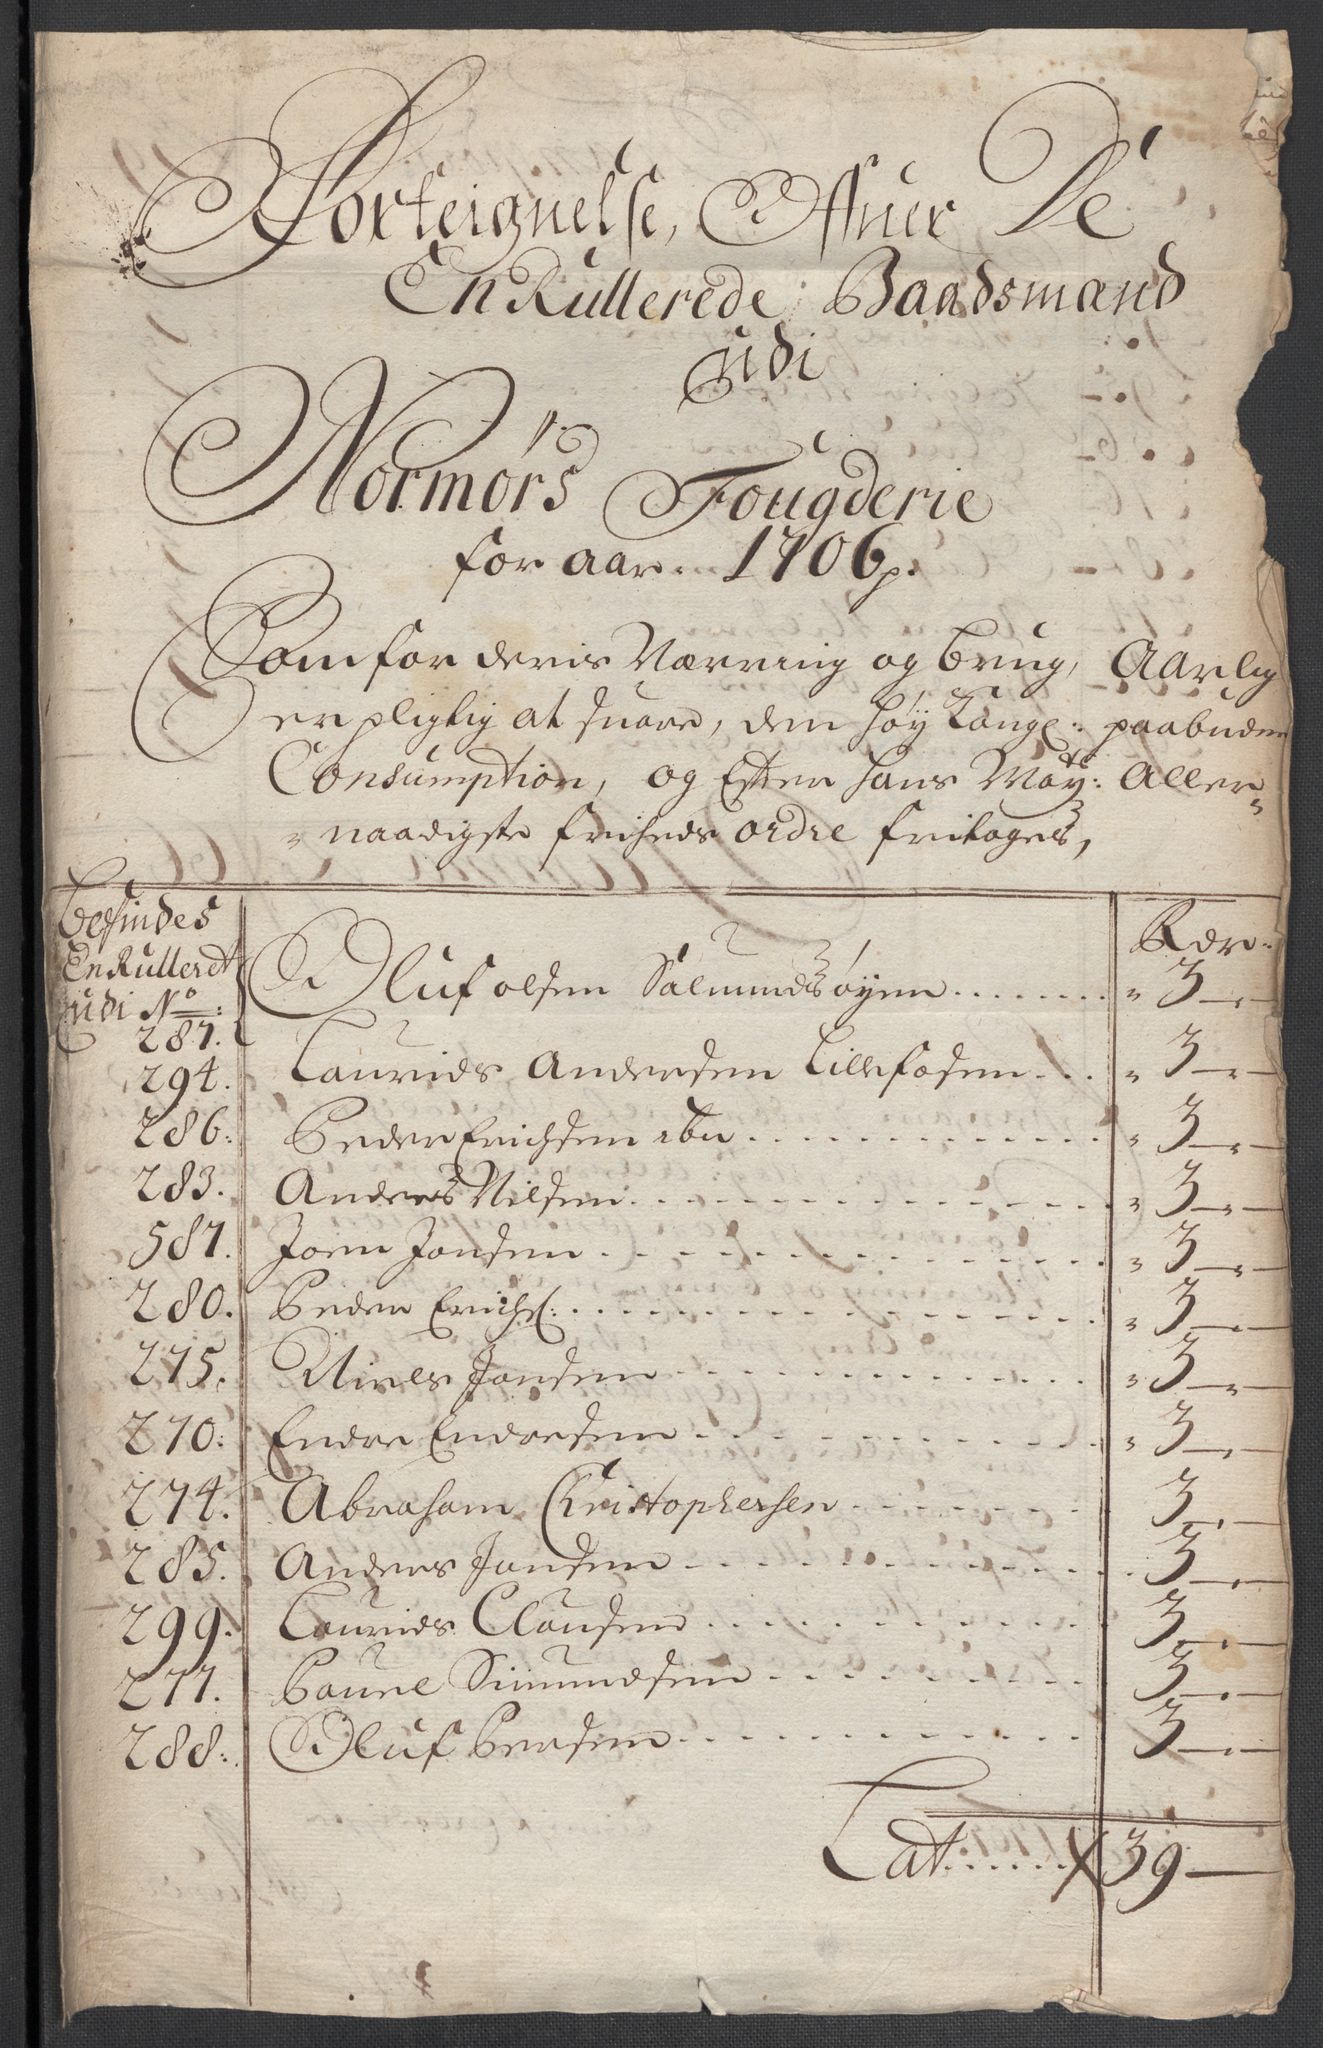 Forteignelse, Offuer De
EnRullerede Baadsmænd
udi
Normørs Fougderie
for aar 1706
Som for deris Nærring og brug, Aarlig
er pligtig at suare, den høy Kongl: paabudene
Consumption, og Efter hans May:ts Aller-
naadigste friheds ordre fritages,
Befindes
EnRulleret
udi No: Rdr
287. Oluf olsen Salmundsøyen ........ 3
294. Laurids Andersen Lillefosen ... 3
286: Peder Erichsen ibn ............ 3
283. Anders Nilsen ............ 3
587. Joen Jonsen ............ 3
280. Peder Erichs: ............ 3
275. Niels Jonsen ............ 3
270: Endre Endresen ............ 3
274. Abraham Christophersen ........ 3
285. Anders Jonsen ............ 3
299. Laurids Clausen ............ 3
277. Pouel Simundsen ............ 3
288: Oluf Persen ............ 3
Lat ...... 39